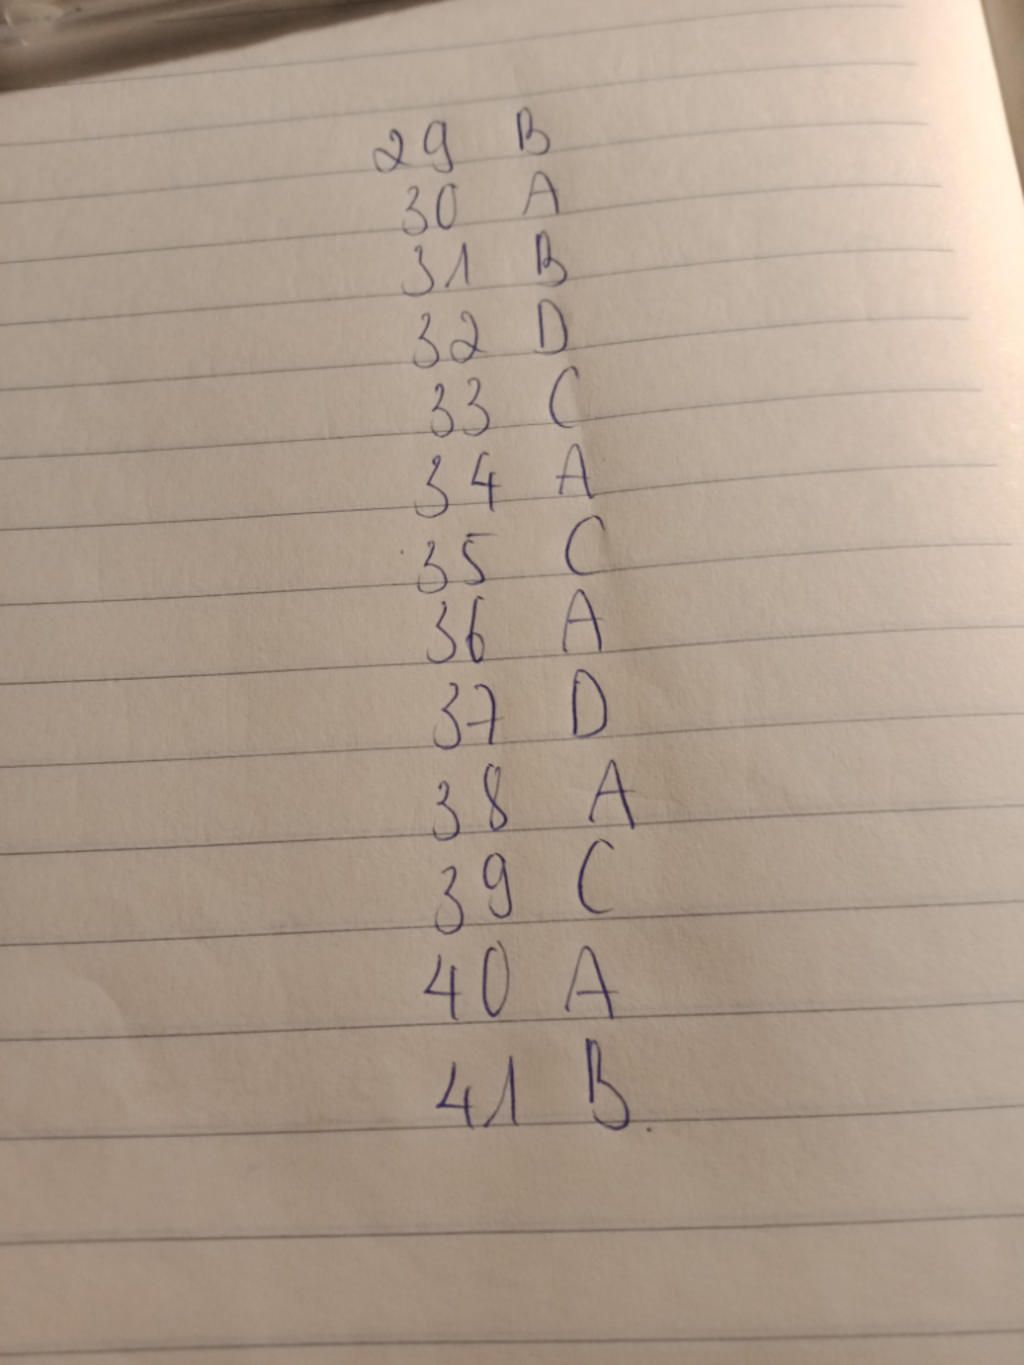 29 B
30 A
31 B
32 D
33 C
34 A
35 C
36 A
37 D
38 A
39 C
40 A
41 B.